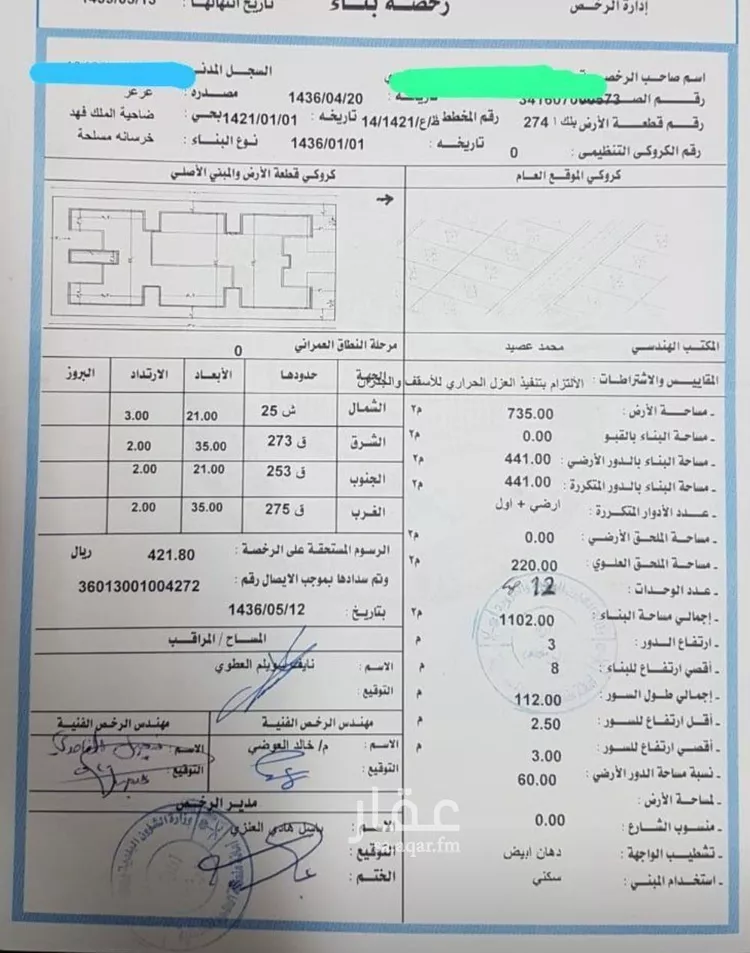 إدارة الرخص
رخصة بناء
تاريخ انتهائها : 1439/05/13
اسم صاحب الرخصة
السجل المدني
رقم الص
تاريخه : 1436/04/20
مصدره : عرعر
رقم قطعة الأرض بلك ا 274
رقم المخطط ظ/ع/14/1421
تاريخه : 1421/01/01
بحي : ضاحية الملك فهد
رقم الكروكي التنظيمى : 0
تاريخه : 1436/01/01
نوع البناء : خرسانه مسلحة
كروكي الموقع العام
كروكي قطعة الأرض والمبني الأصلي
المكتب الهندسي : محمد عصيد
مرحلة النطاق العمراني 0
المقاييس والاشتراطات : الألتزام بتنفيذ العزل الحراري للأسقف والجدران
ـ مساحة الأرض : 735.00 م٢
ـ مساحة البناء بالقبو 0.00 م٢
ـ مساحة البناء بالدور الأرضي : 441.00 م٢
ـ مساحة البناء بالدور المتكررة : 441.00 م٢
ـ عدد الأدوار المتكررة : ارضي + اول
ـ مساحة الملحق الأرضي : 0.00 م٢
ـ مساحة الملحق العلوي : 220.00 م٢
ـ عدد الوحدات : 12
ـ إجمالي مساحة البناء : 1102.00 م٢
ـ ارتفاع الدور : 3 م
ـ أقصي ارتفاع للبناء : 8 م
ـ إجمالي طول السور : 112.00 م
ـ أقل ارتفاع للسور : 2.50 م
ـ أقصي ارتفاع للسور : 3.00 م
ـ نسبة مساحة الدور الأرضي : 60.00
لمساحة الأرض :
ـ منسوب الشارع : 0.00
ـ تشطيب الواجهة : دهان ابيض
ـ استخدام المبني : سكني
الجهة حدودها الأبعاد الارتداد البروز
الشمال ش 25 21.00 3.00
الشرق ق 273 35.00 2.00
الجنوب ق 253 21.00 2.00
الغرب ق 275 35.00 2.00
الرسوم المستحقة على الرخصة : 421.80 ريال
وتم سدادها بموجب الايصال رقم : 36013001004272
بتاريخ : 1436/05/12
المساح / المراقب
الاسم : العطوي
التوقيع :
مهندس الرخص الفنية
الاسم : م/ خالد العوضي
التوقيع :
مهندس الرخص الفنية
الاسم :
التوقيع :
مدير الرخص
الاسم : نايل هادي العنزي
التوقيع :
الختم :
عقار
sa.aqar.fm